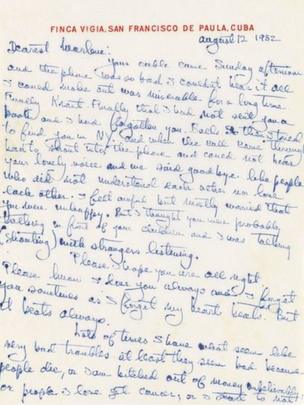 FINCA VIGIA, SAN FRANCISCO DE PAULA, CUBA
August 12 1952
Dearest Marlene:
Your cable came Sunday afternoon
and the phone was so bad I couldn't hear it all
I could make out was miserable for a long time
Finally Knout Finally that I had not sent you a
book and I had forgotten you. Calls
to find you in NY and when the call came through
had to shout into the phone and could not hear
your lovely voice and we said goodbye like people
who did not understand each other nor love
each other. I feel awful but mostly worried that
you were unhappy. But I thought you were probably
talking in front of your children and I was talking
(shouting) with strangers listening.
Please I hope you are all right.
Please know I love you always and I forget
you sometimes as I forget my heart beats. But
it beats always.
Lots of times I have what seem like
very bad troubles at least they seem bad because
people die, or I am bitched out of money
or people I love get cancer, or I have to not